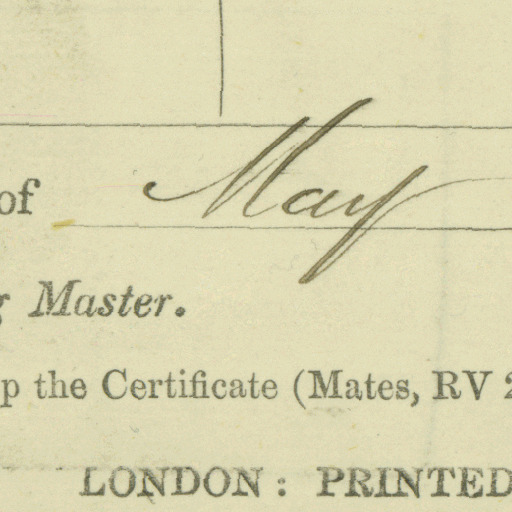 of May
Master.
p the Certificate (Mates, RV 2
LONDON: PRINTED